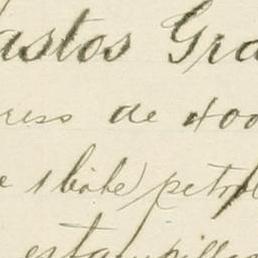 astos Gra
ress de 400
e 1 bote petrol
estampilla